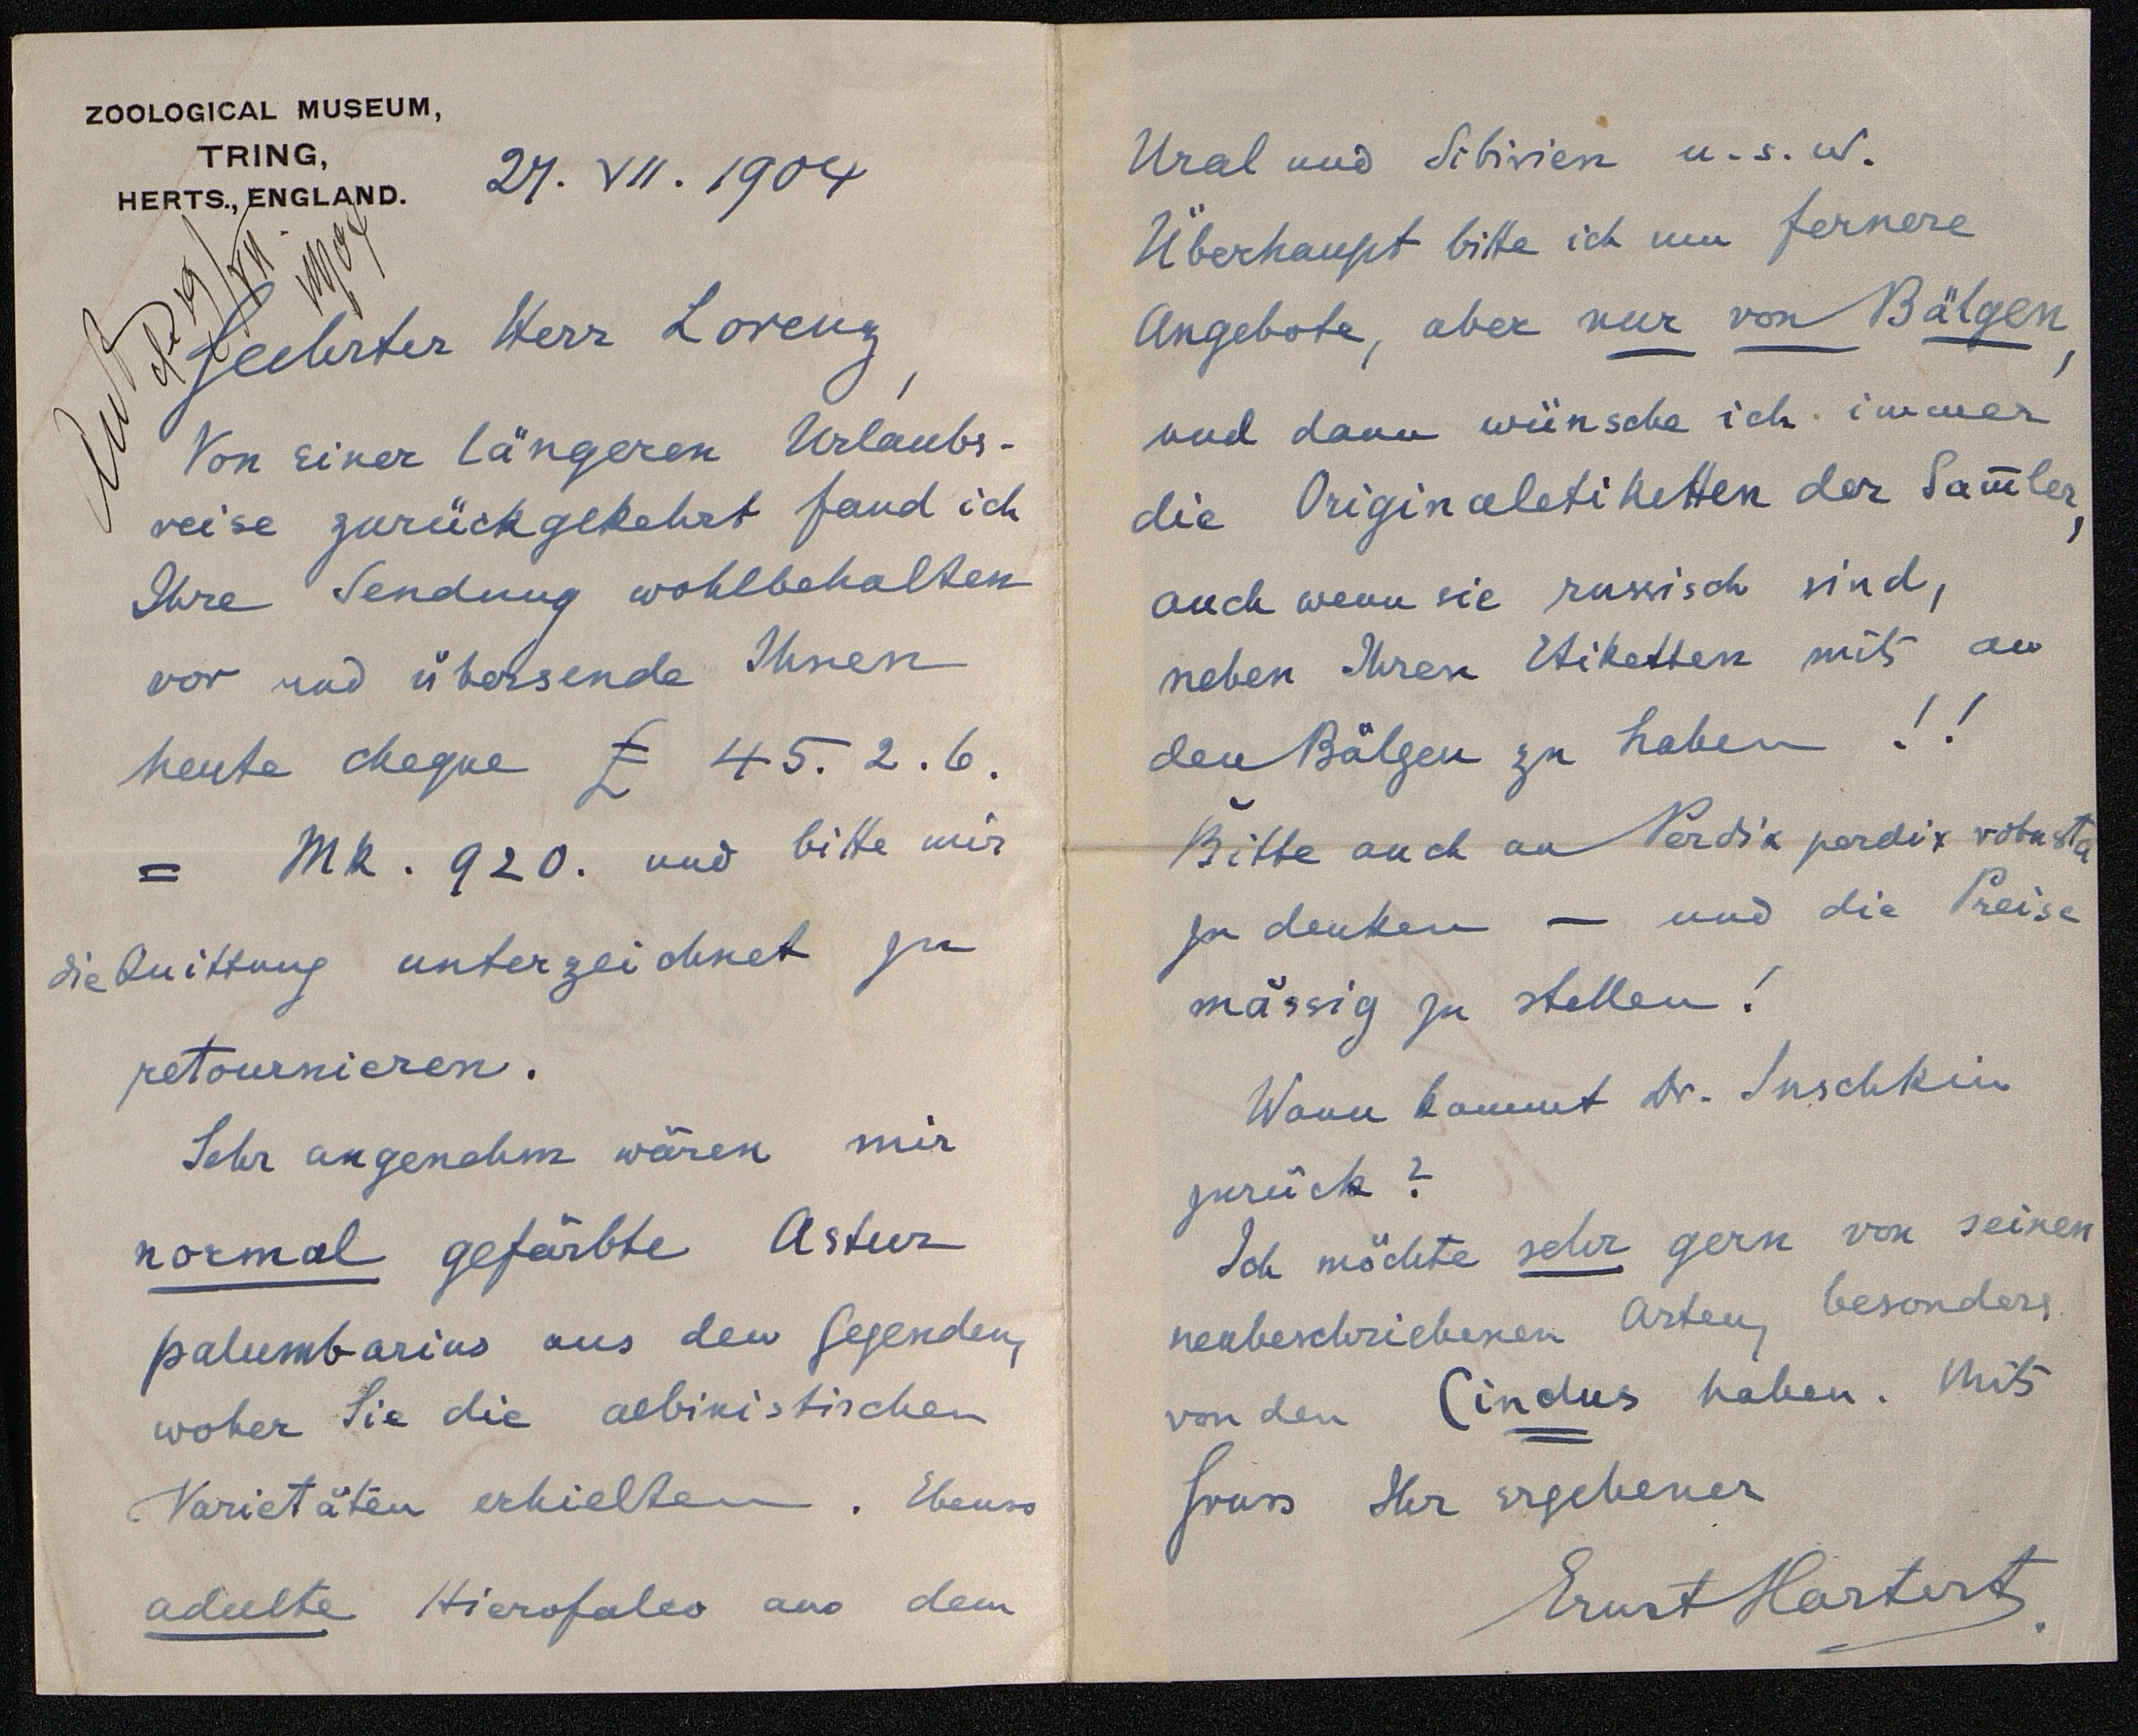 ZOOLOGICAL MUSEUM,
TRING,
HERTS., ENGLAND.
27. VII. 1904
Geehrter Herr Lorenz,
Von einer längeren Urlaubs-
reise zurückgekehrt fand ich
Ihre Sendung wohlbehalten
vor und übersende Ihnen
heute cheque £ 45. 2. 6.
= Mk. 920. und bitte mir
die Quittung unterzeichnet zu
retournieren.
Sehr angenehm wären mir
normal gefärbte Astur
palumbarius aus den Gegenden,
woher Sie die albinistischen
Varietäten erhielten. Ebenso
adulte Hierofalco aus dem
Ural und Sibirien u.s.w.
Überhaupt bitte ich um fernere
Angebote, aber nur von Bälgen,
und dann wünsche ich immer
die Originaletiketten der Sam̄ler,
auch wenn sie russisch sind,
neben Ihren Etiketten mit an
den Bälgen zu haben!!
Bitte auch an Perdix perdix robusta
zu denken — und die Preise
mässig zu stellen!
Wann kommt Dr. Suschkin
zurück?
Ich möchte sehr gern von seinen
neubeschriebenen Arten, besonders
von den Cinclus haben. Mit
Gruss Ihr ergebener
Ernst Hartert.